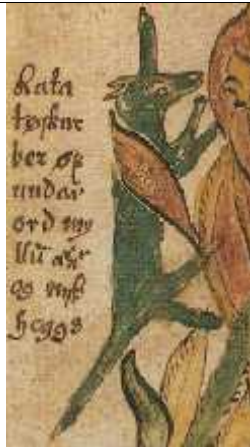 Rata
tøskur
ber øf
undar
ord my
llū arnr
og nyþ
heggs